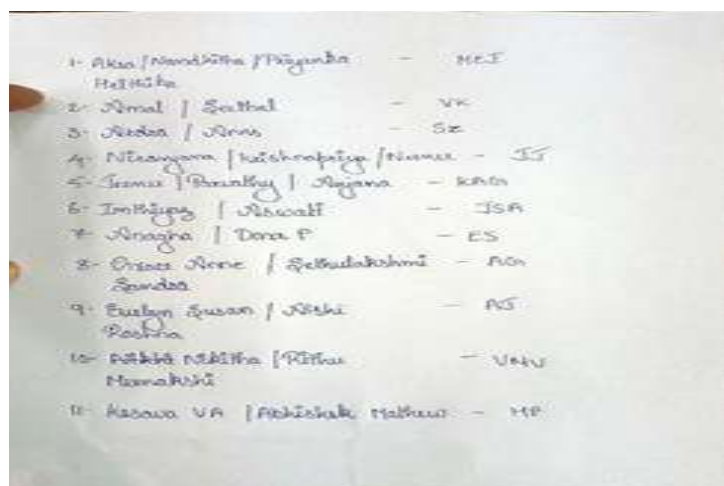 1- Aksa / Nandhitha / Priyanka - MEJ
Hrithika
2- Amal / Sethal - VK
3- Ardra / Anns - SZ
4- Niranjana / Krishnapriya / Neenu - JJ
5- Irene / Parvathy / Anjana - KAG
6- Imthiyaz / Aswati - JSA
7- Anagha / Dona P - ES
8- Grace Anne / Sethulakshmi - AG
Sandra
9- Evelyn Susan / Nithi - AJ
Roshna
10- Nikitha / Rithu - VNV
Meenakshi
11- Kesava VA / Abhishek Mathew - MP